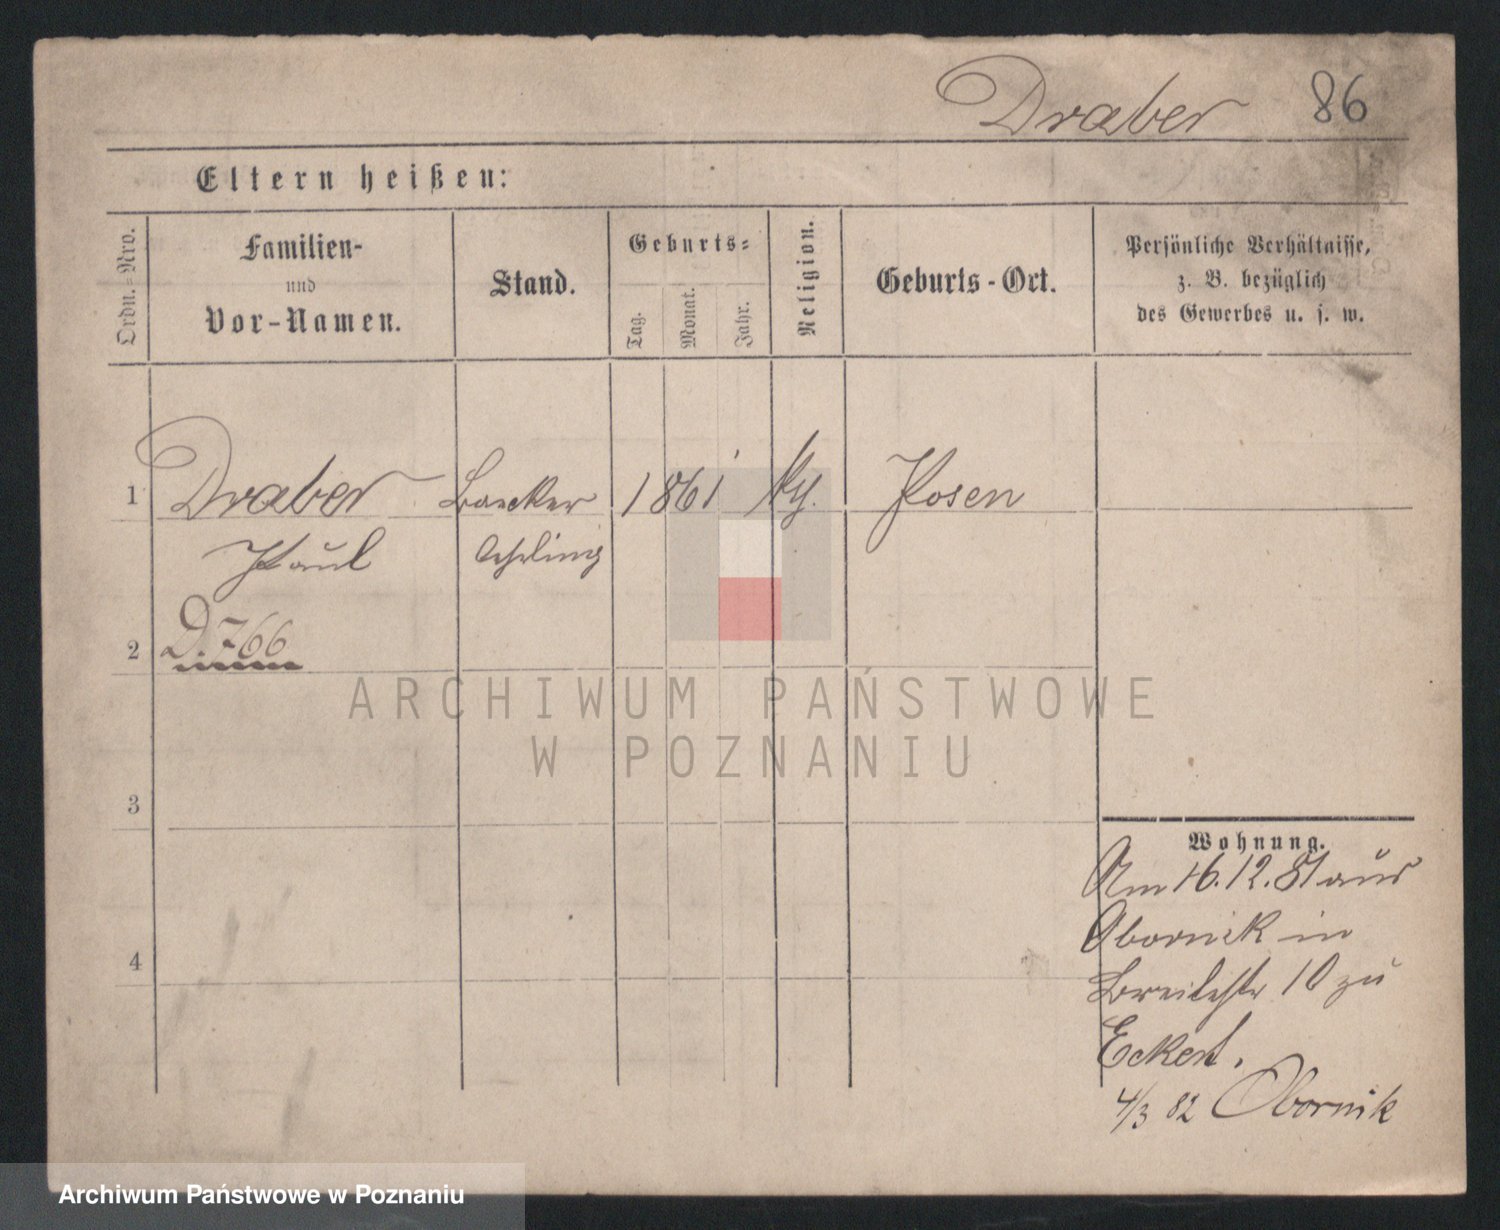 Draber 86
Eltern heißen:
Ordn.=Nro.
Familien-
und
Vor-Namen.
Stand.
Geburts=
Tag.
Monat.
Jahr.
Religion.
Geburts-Ort.
Persönliche Verhältnisse,
z. B. bezüglich
des Gewerbes u. s. w.
1 Draber Baecker 1861 Posen
Paul
2 D. 766
3
4
Wohnung.
Am 16.12.81 aus
Obornik in
Breitestr 10 zu
Eckert.
4/3 82 Obornik
ARCHIWUM PAŃSTWOWE
W POZNANIU
Archiwum Państwowe w Poznaniu